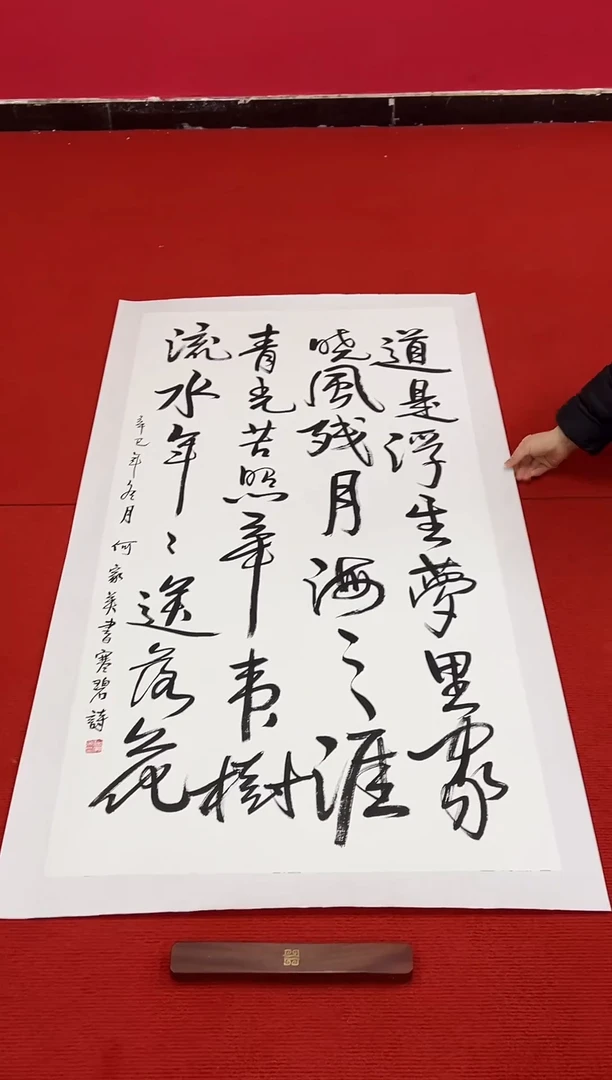 道是浮生夢里家
晓風残月海之涯
青光苦照辛夷樹
流水年々送落花
辛巳年冬月何家英書寒碧詩